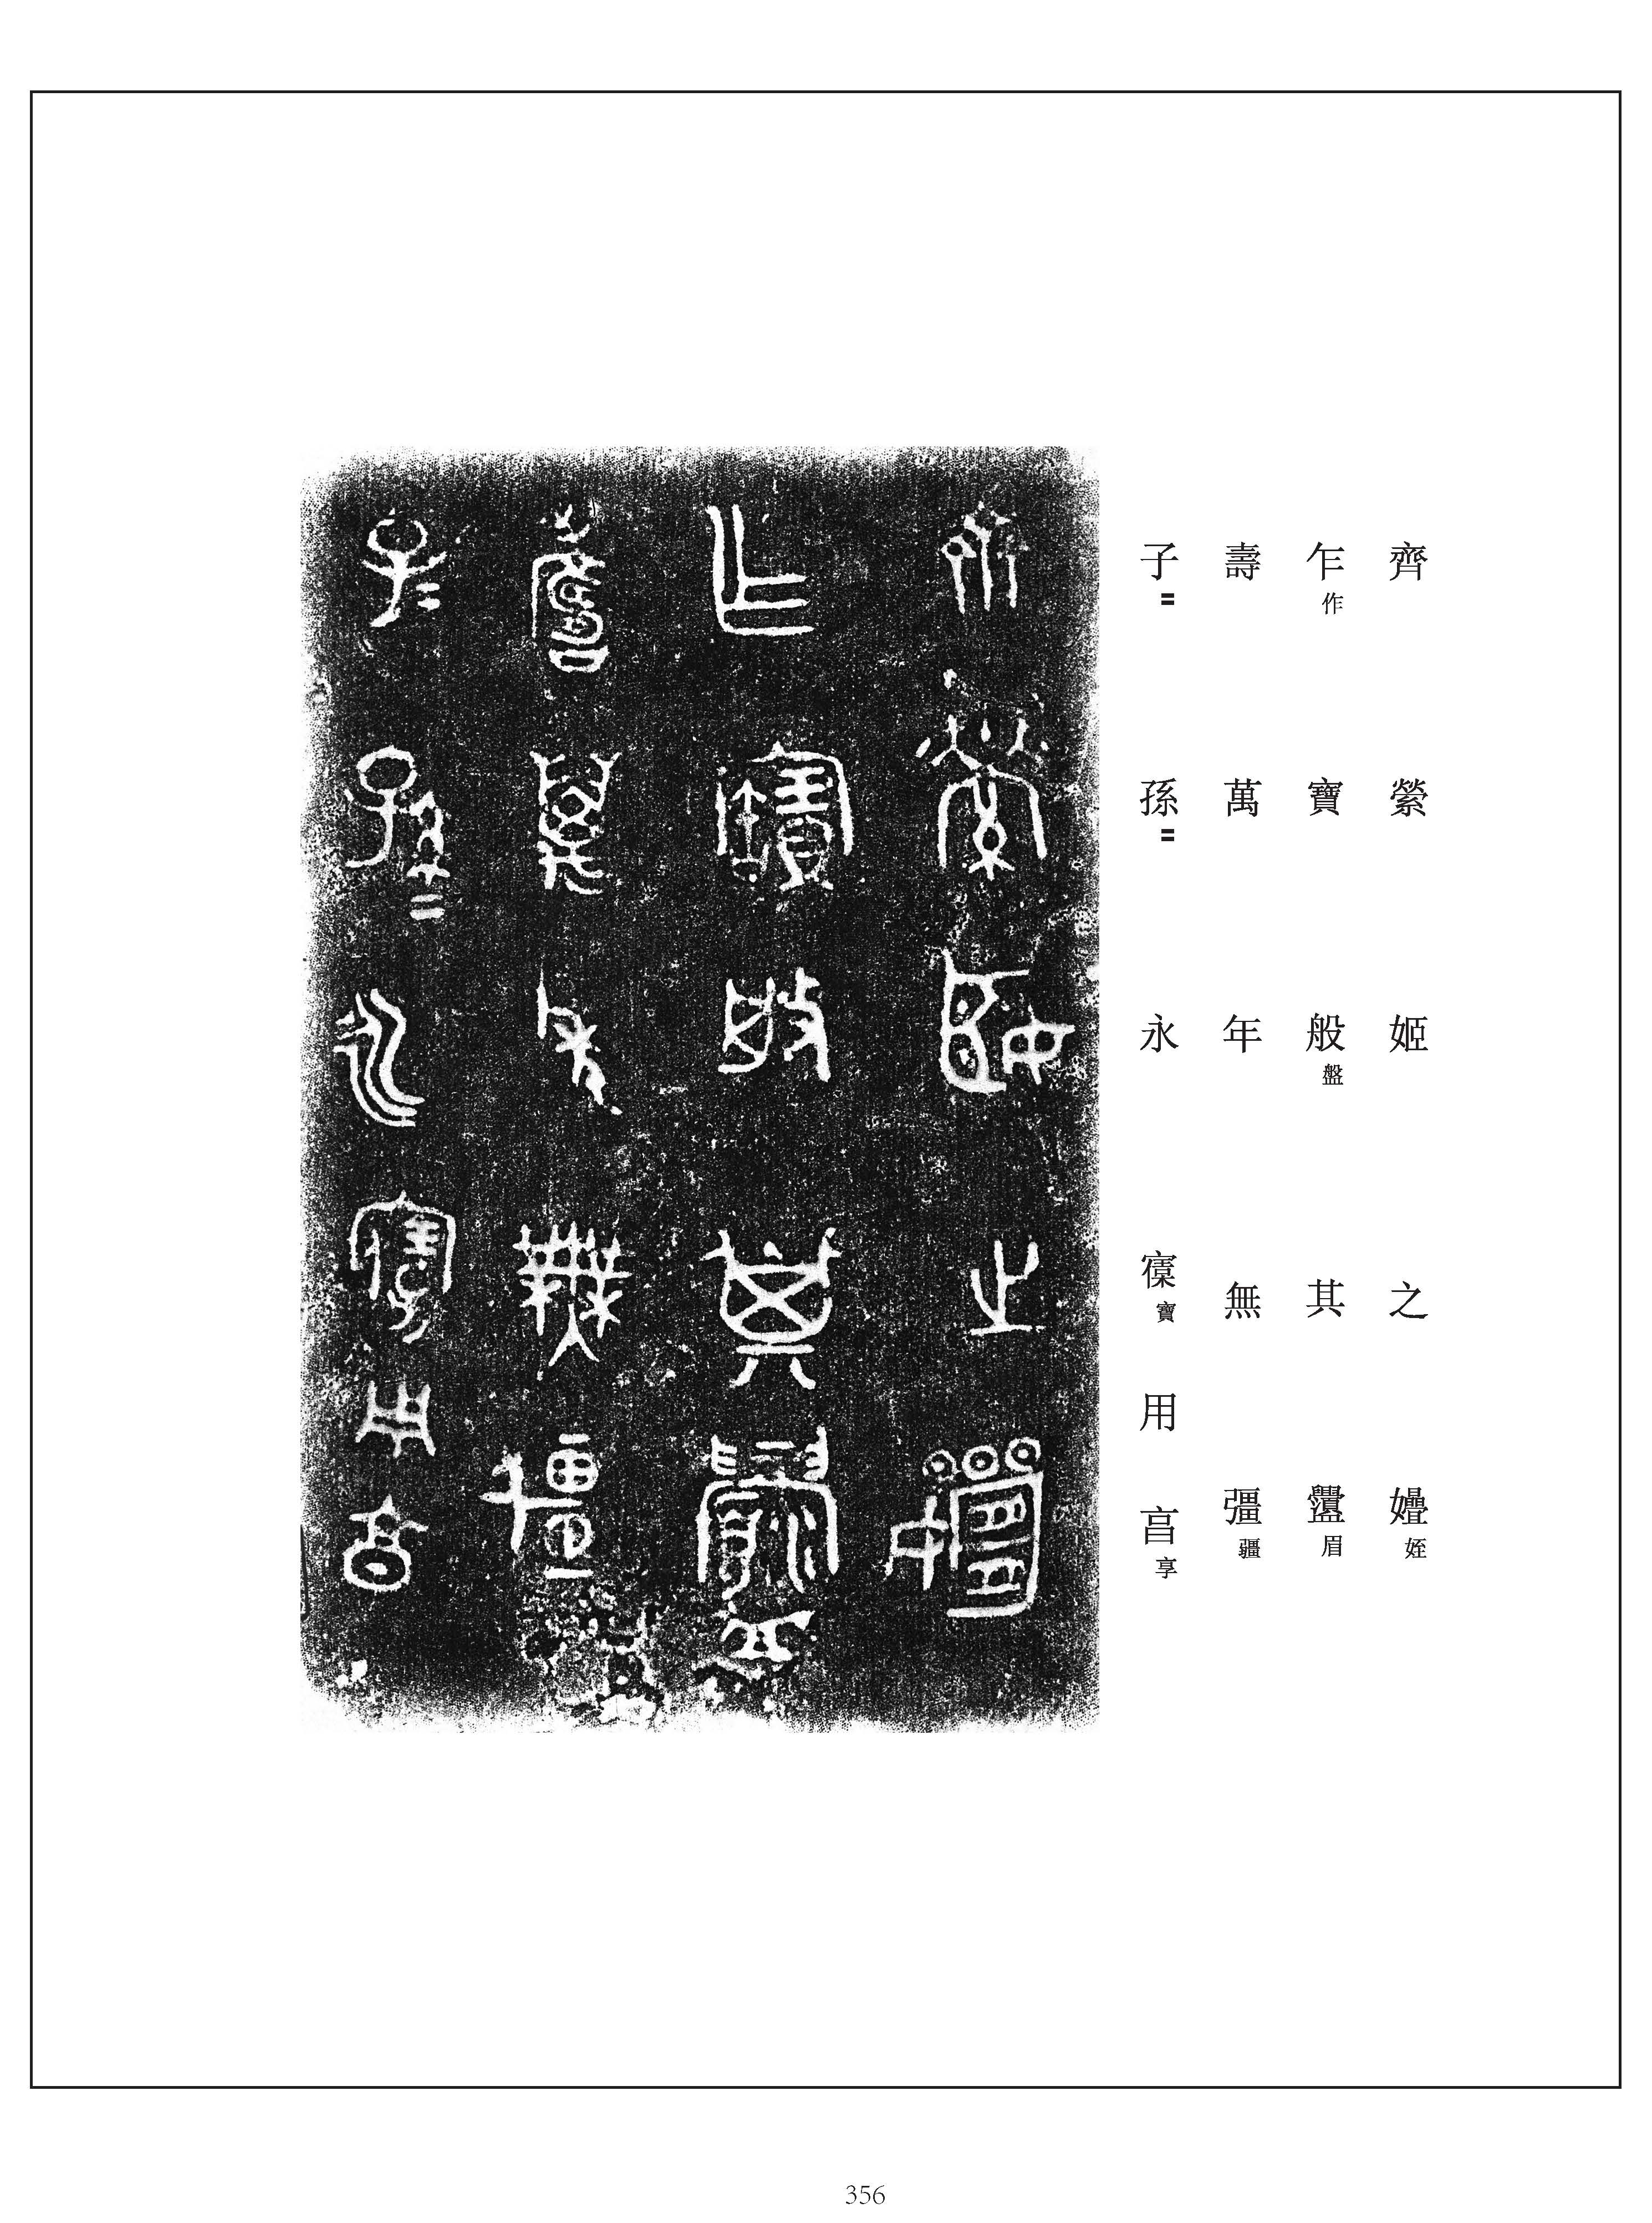 齊縈姬之嬯姪
乍作寶般盤其釁眉
壽萬年無彊疆
子〓孫〓永寶用亯享
356